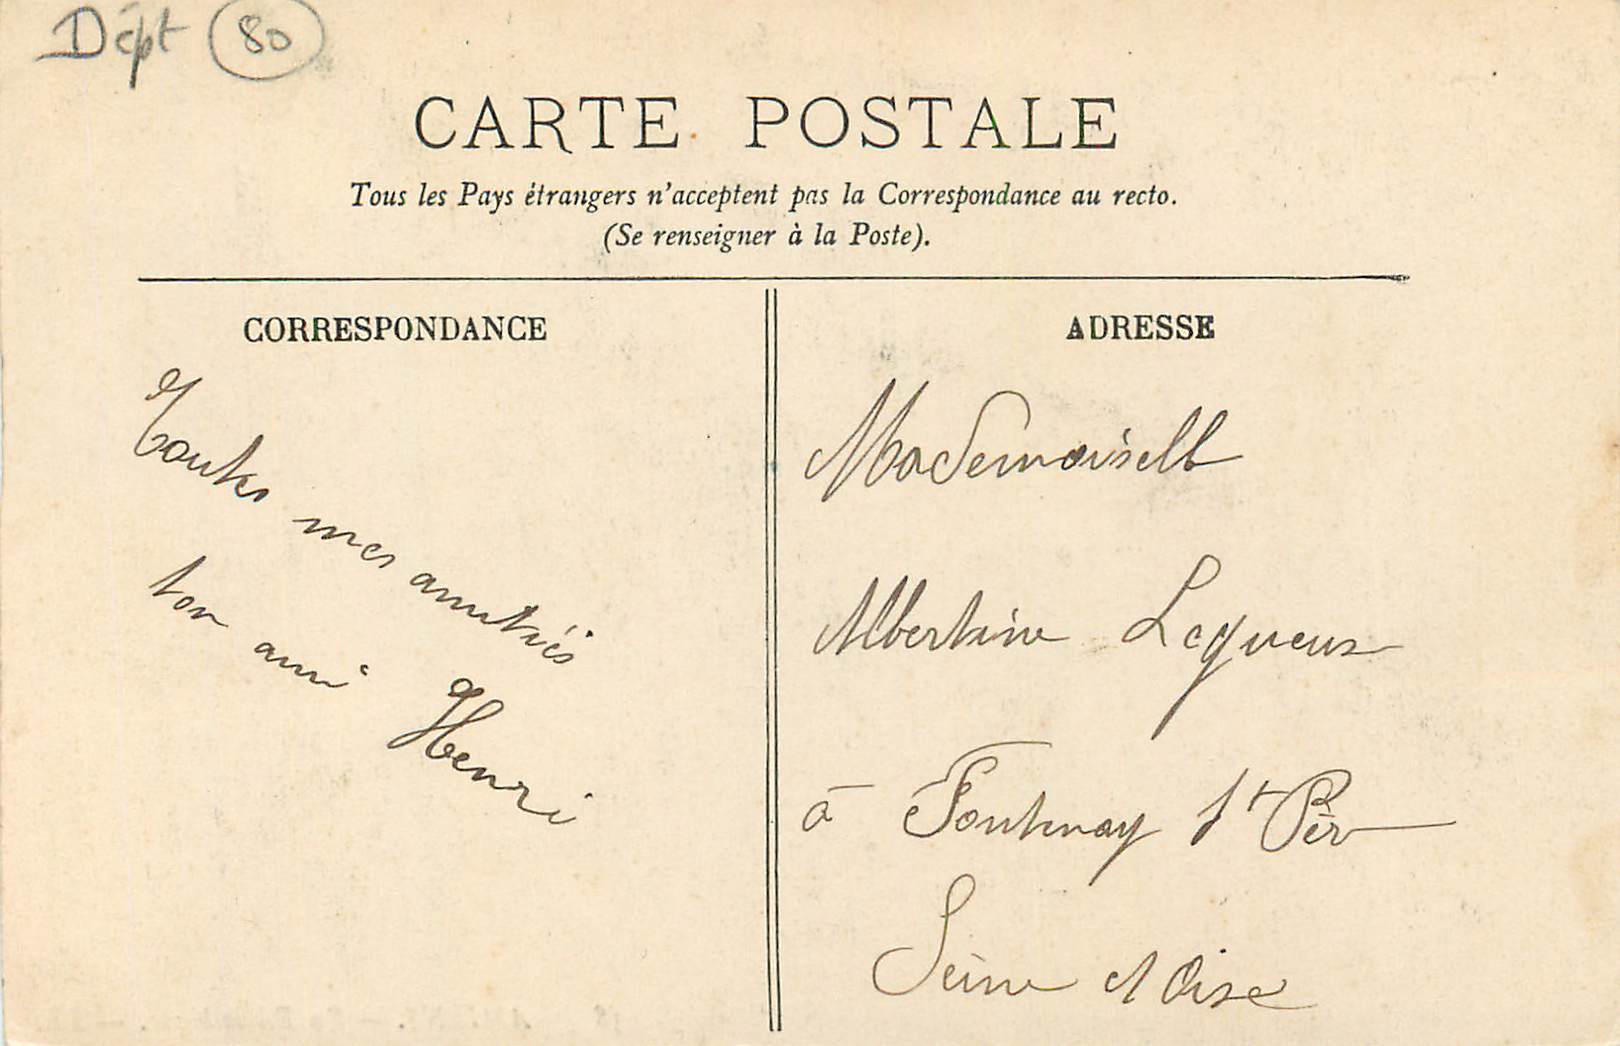 Dépt 80
CARTE POSTALE
Tous les Pays étrangers n'acceptent pas la Correspondance au recto.
(Se renseigner à la Poste).
CORRESPONDANCE
Toutes mes amitiés
ton ami Henri
ADRESSE
Mademoiselle
Albertine Lequeux
à Fontenay St Père
Seine et Oise